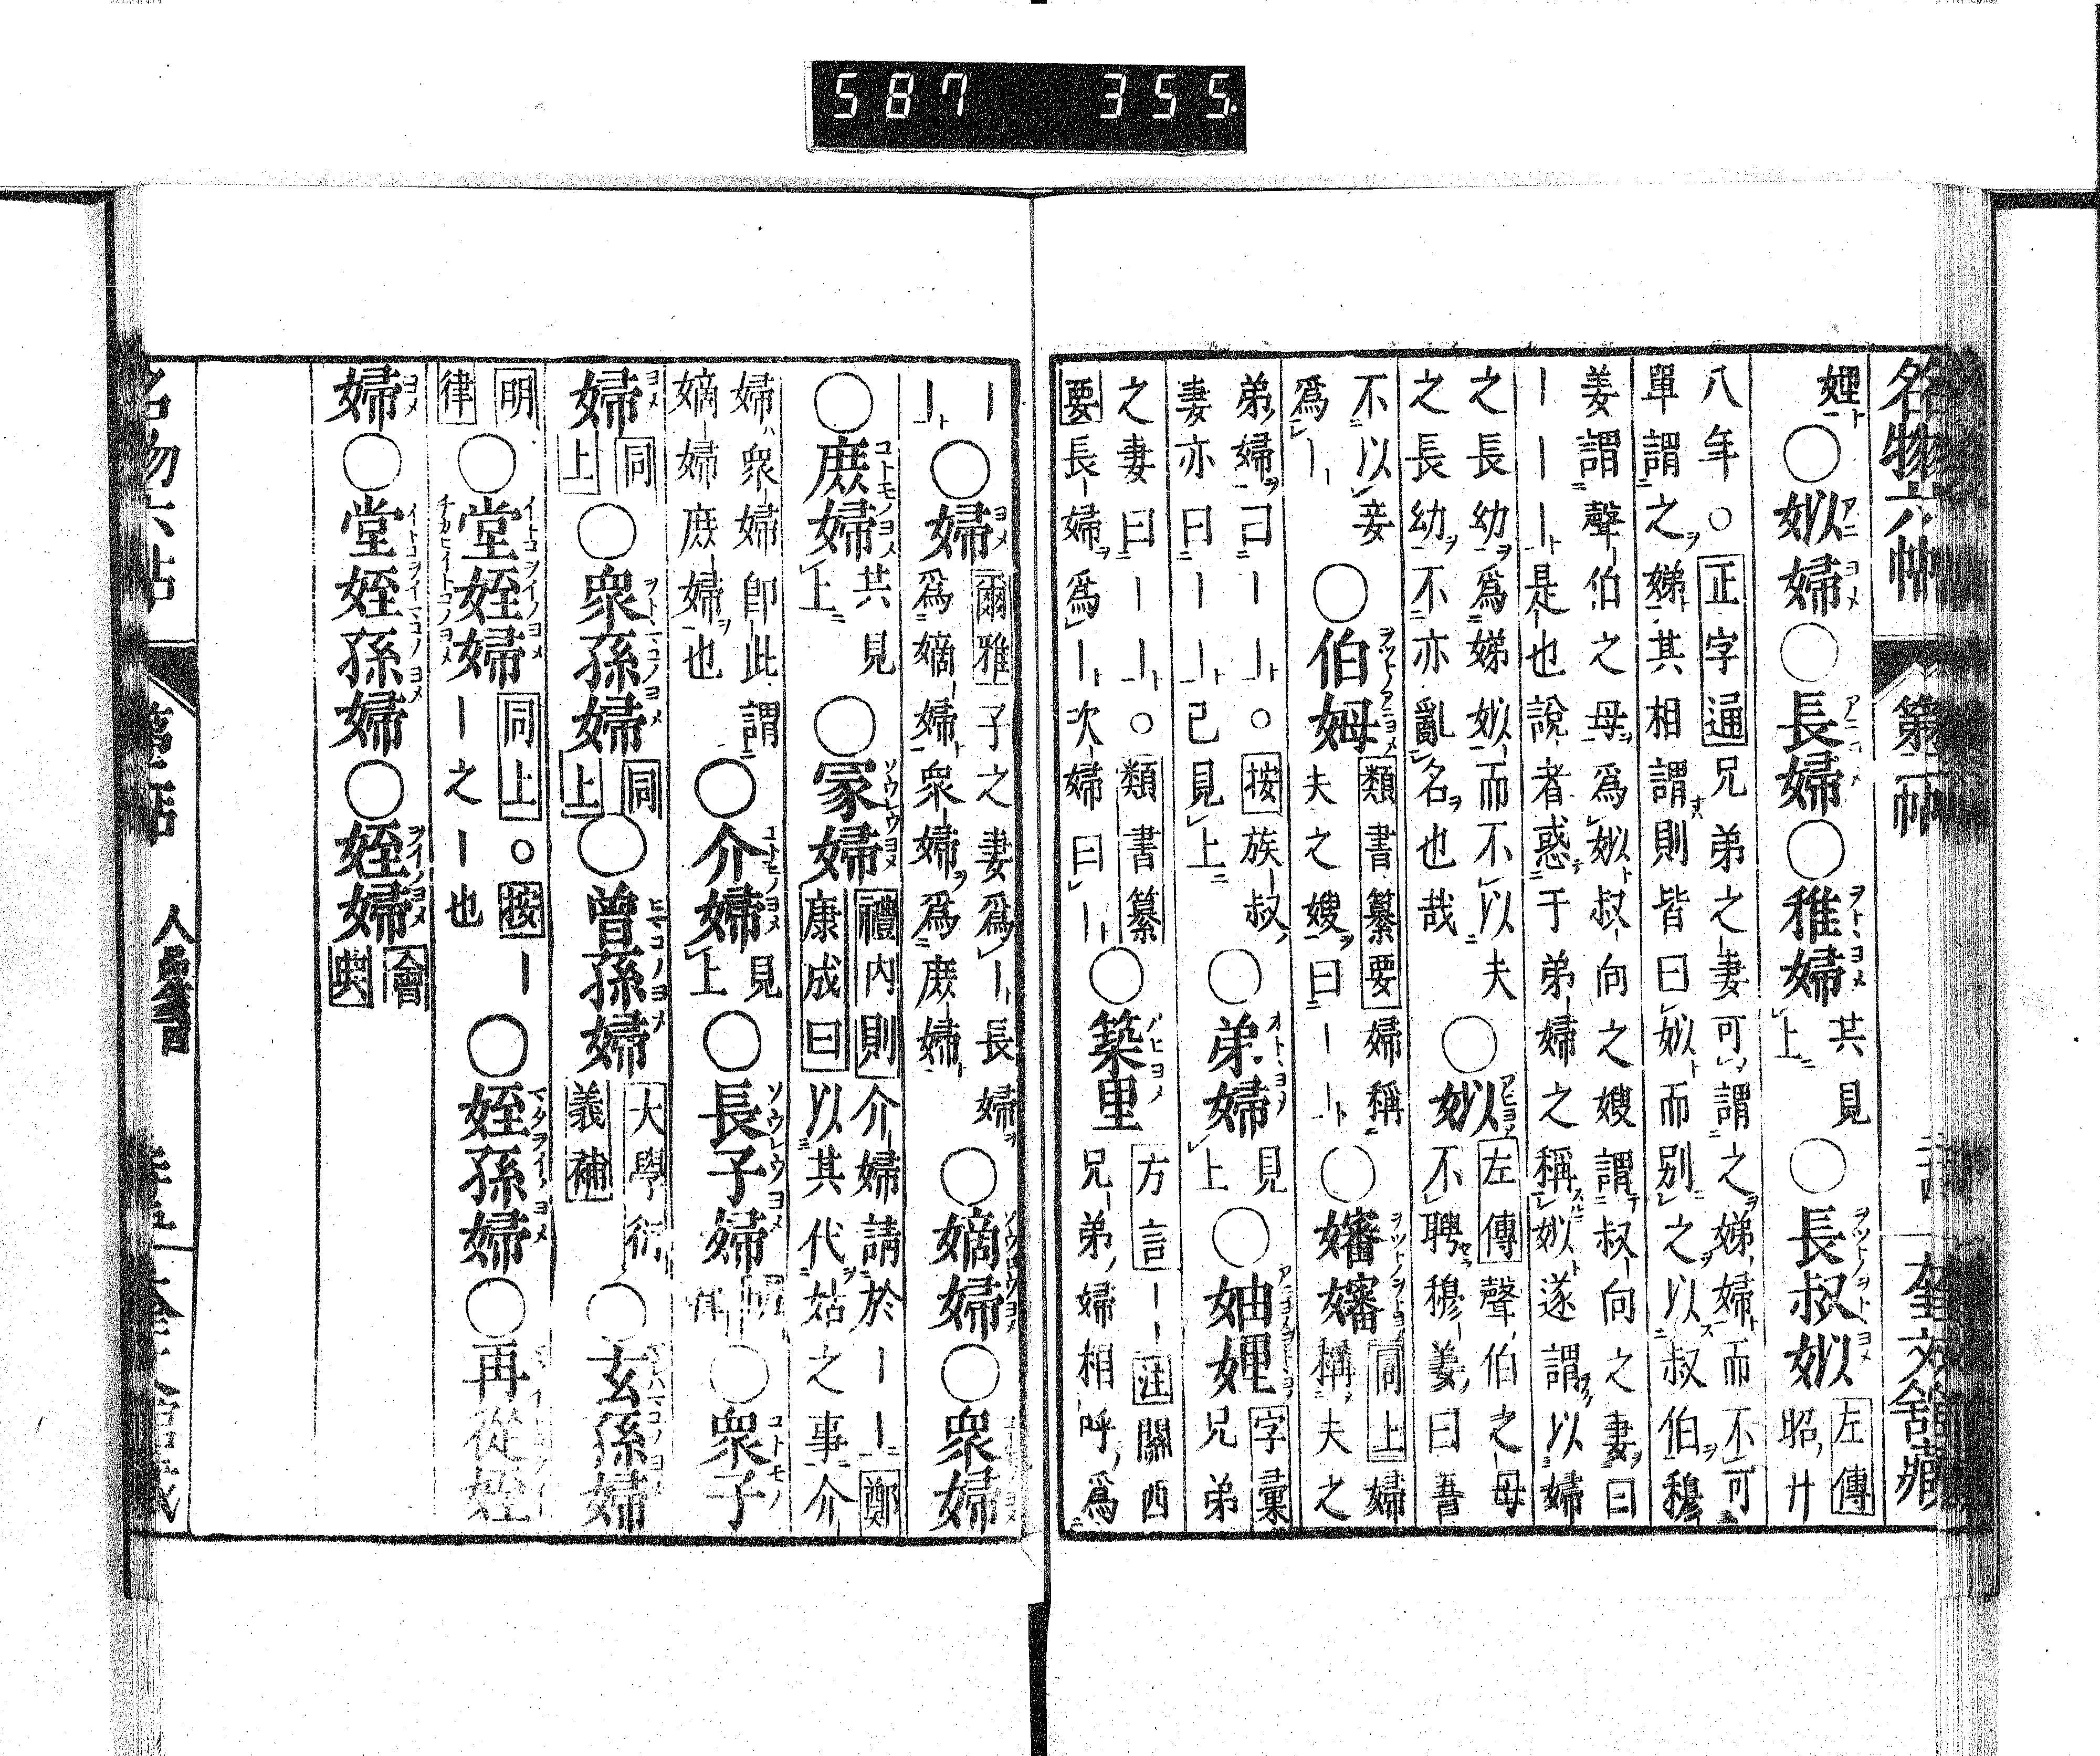 587 355.
名物六帖 第二帖 奎文館藏
娌
〇姒婦〇長婦〇稚婦 共見上 〇長叔姒 左傳昭廿
八年○正字通兄弟之妻可謂之娣婦而不可
單謂之娣其相謂則皆曰姒而別之以叔伯穆
姜謂聲伯之母爲姒叔向之嫂謂叔向之妻曰
丨丨丨是也說者惑于弟婦之稱姒遂謂以婦
之長幼爲娣姒而不以夫
之長幼不亦亂名也哉
〇姒 左傳聲伯之母不聘穆姜曰吾
不以妾爲丨
〇伯姆 類書纂要婦稱夫之嫂曰丨丨 〇嬸嬸 同上婦稱夫之
弟婦曰丨丨○按族叔妻亦曰丨丨已見上
〇弟婦 見上 〇妯娌 字彙兄弟
之妻曰丨丨○類書纂要長婦爲丨次婦曰丨
〇築里 方言丨丨注關西兄弟婦相呼爲
丨丨
〇婦 爾雅子之妻爲丨長婦爲嫡婦衆婦爲庶婦 〇嫡婦〇衆婦
〇庶婦 共見上 〇冢婦 禮內則介婦請於丨丨鄭康成曰以其代姑之事介
婦衆婦卽此謂嫡婦庶婦也
〇介婦 見上 〇長子婦 〇衆子
婦 同上 〇衆孫婦 同上 〇曾孫婦 大學衍義補 〇玄孫婦
明律 〇堂姪婦 同上○按丨丨之丨也 〇姪孫婦〇再從姪
婦〇堂姪孫婦〇姪婦 會典